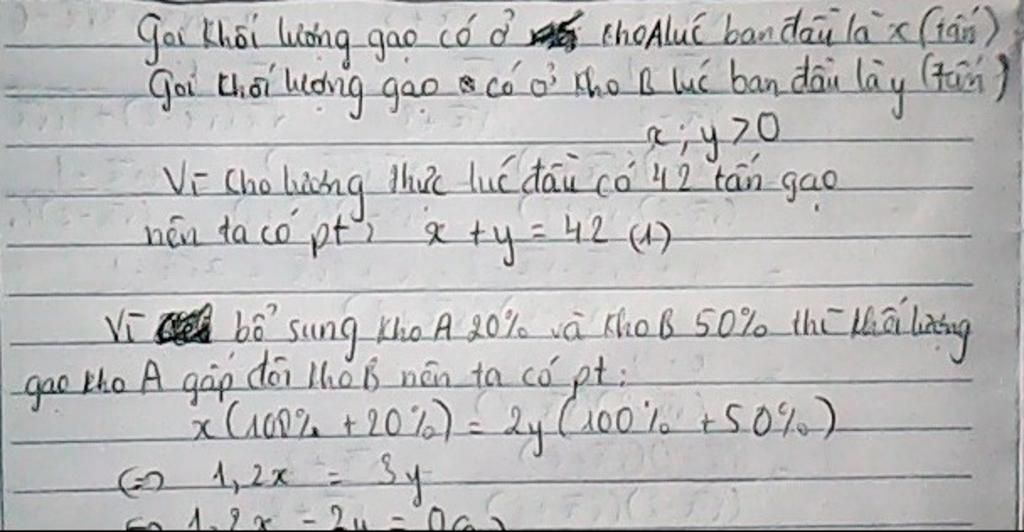 Gọi khối lượng gạo có ở kho A lúc ban đầu là x (tấn)
Gọi khối lượng gạo có ở kho B lúc ban đầu là y (tấn)
x; y > 0
Vì kho lương thực lúc đầu có 42 tấn gạo
nên ta có pt: x + y = 42 (1)
Vì bổ sung kho A 20% và kho B 50% thì khối lượng
gạo kho A gấp đôi kho B nên ta có pt:
x(100% + 20%) = 2y(100% + 50%)
⇔ 1,2x = 3y
⇔ 1,2x -